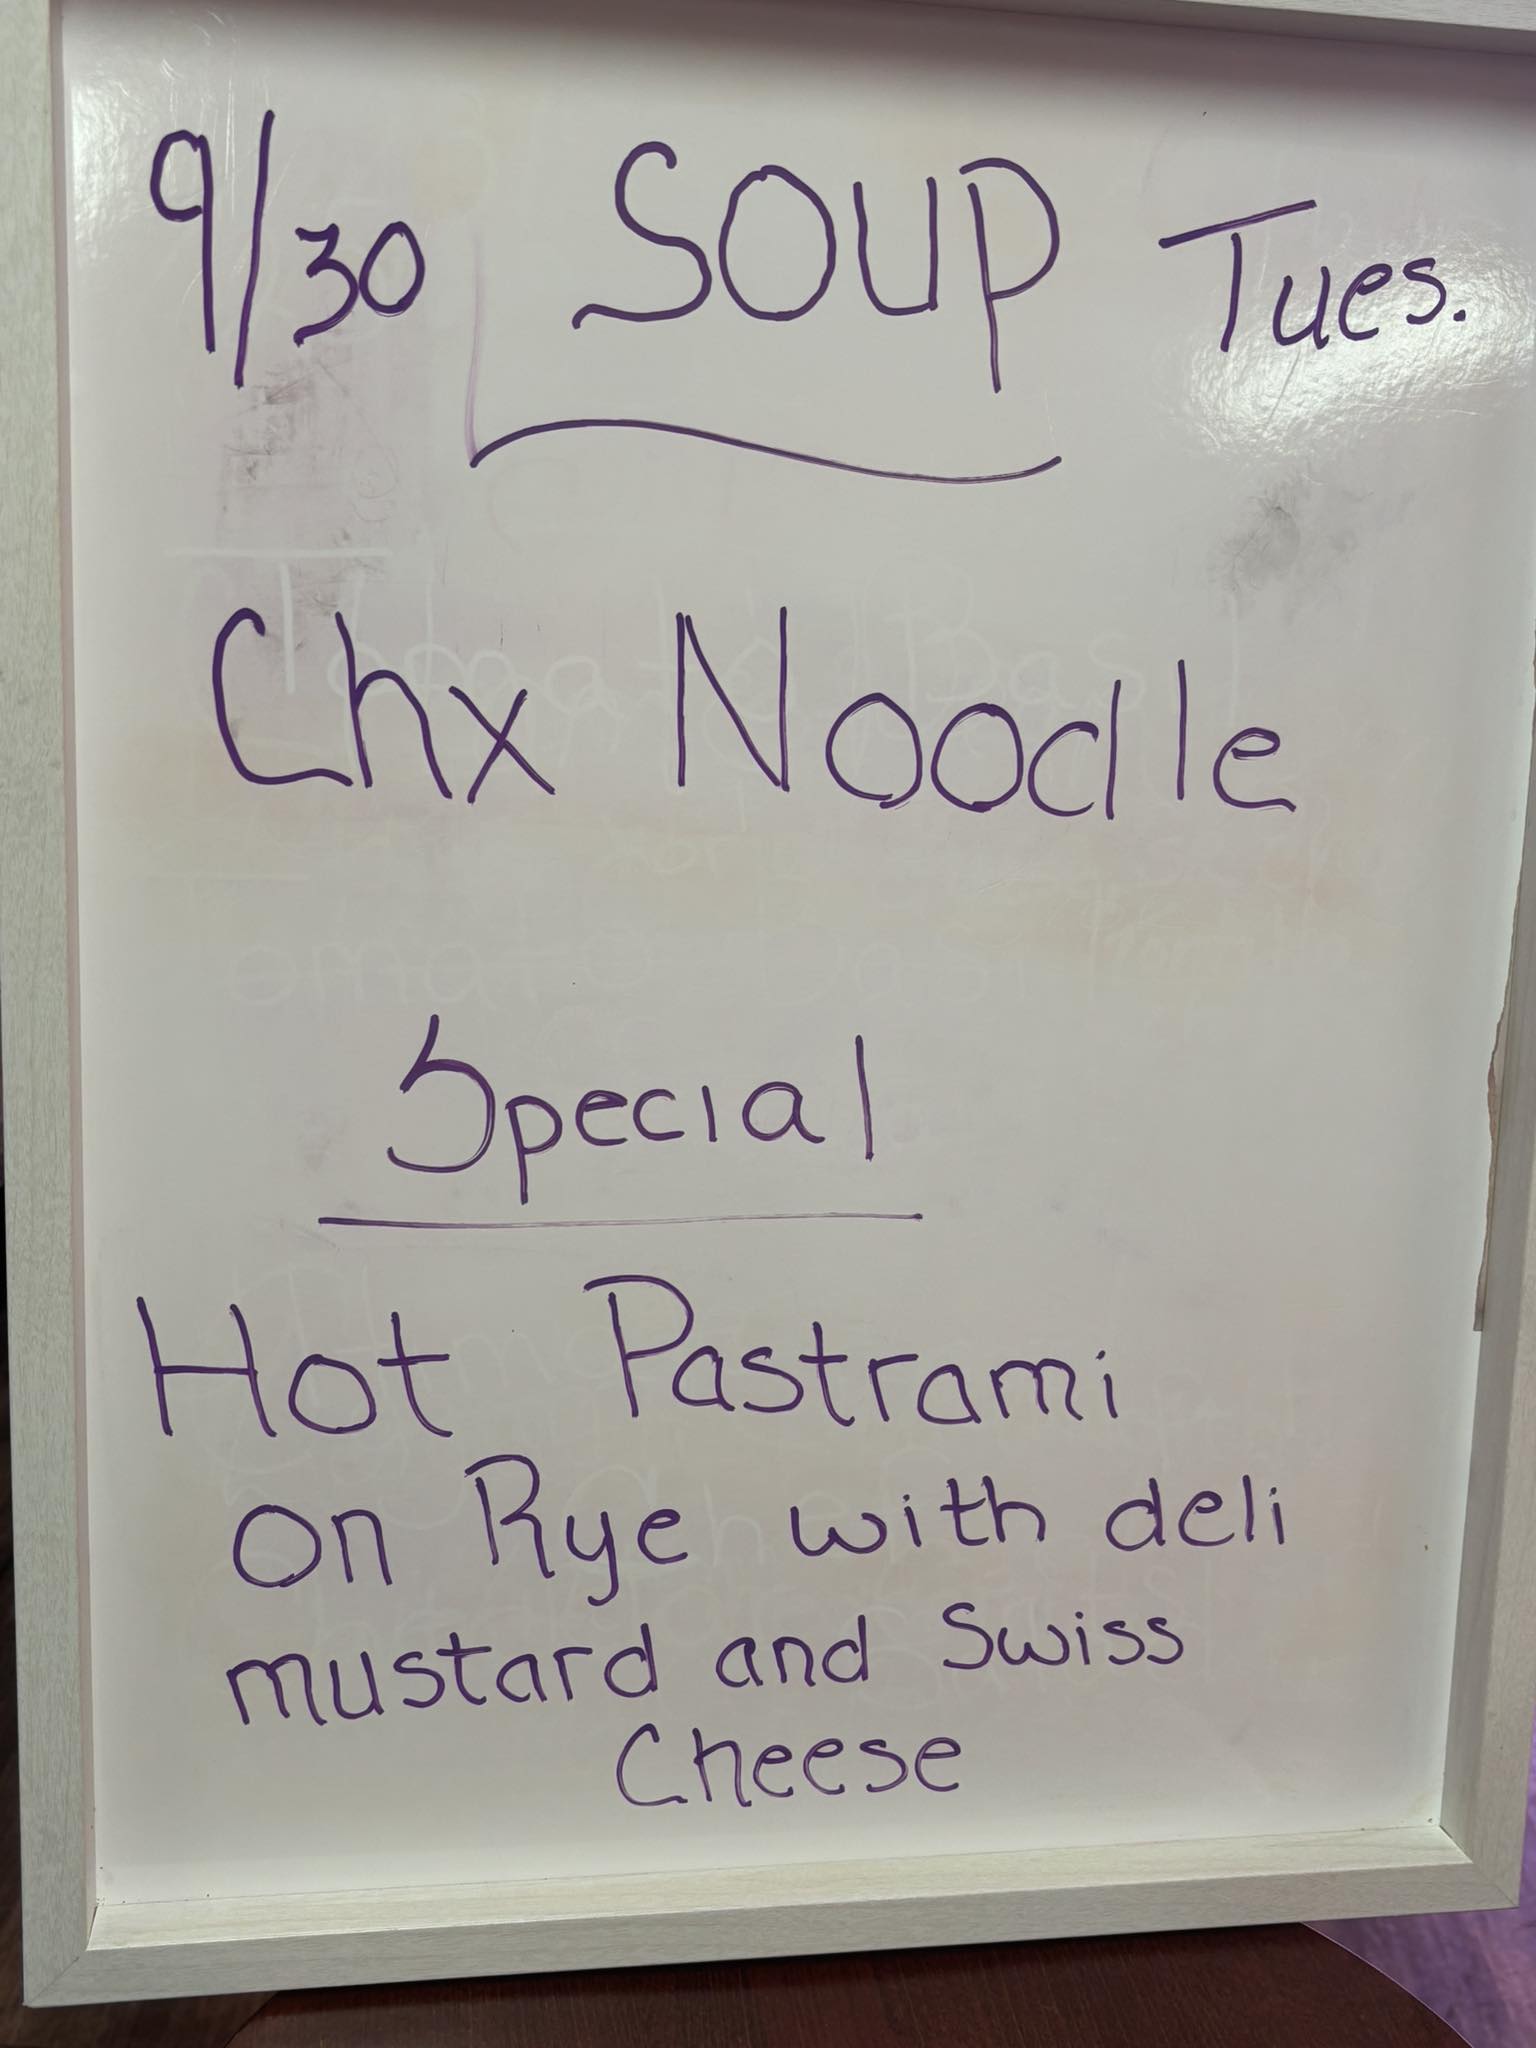 9/30 SOUP Tues.
Chx Noodle
Special
Hot Pastrami
on Rye with deli
mustard and Swiss
Cheese